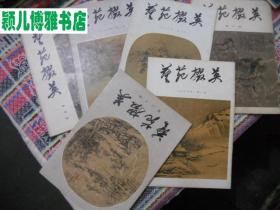 颖儿博雅书店
藝苑掇英
藝苑掇英
藝苑掇英
藝苑掇英
藝苑掇英
藝苑掇英